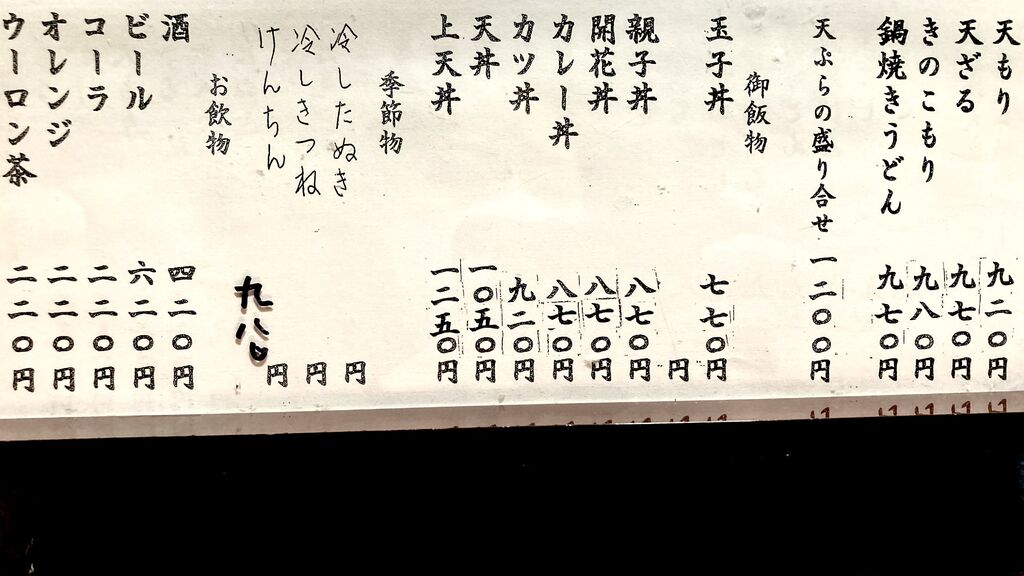 天もり 九二〇円
天ざる 九七〇円
きのこもり 九八〇円
鍋焼きうどん 九七〇円
天ぷらの盛り合せ 一二〇〇円
御飯物
玉子丼 七七〇円
円
親子丼 八七〇円
開花丼 八七〇円
カレー丼 八七〇円
カツ丼 九二〇円
天丼 一〇五〇円
上天丼 一二五〇円
季節物
冷したぬき 円
冷しきつね 円
けんちん 円
九八〇
お飲物
酒 四二〇円
ビール 六二〇円
コーラ 二二〇円
オレンジ 二二〇円
ウーロン茶 二二〇円